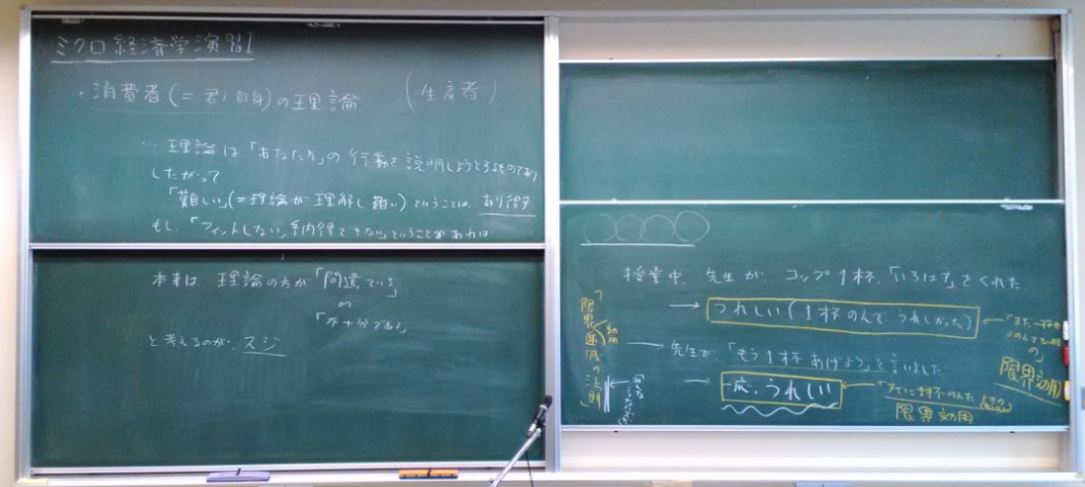 ミクロ経済学演習I
・消費者(=君たち自身)の理論 (生産者)
… 理論は「あなた方」の行動を説明しようとするものであり
したがって
「難しい」(=理論が理解し難い)ということは、あり得ず
もし、「フィットしない」「納得できない」ということがあれば
本来は 理論の方が「間違っている」
か
「不十分である」
と考えるのが、スジ
授業中、先生が、コップ1杯、「いろはす」をくれた
→ うれしい(1杯のんでうれしかった)
←「まだ一杯も
のんでない時
の」
限界効用
→ 先生が、「もう1杯あげよう」と言いました
→ 一応、うれしい
←「すでに1杯のんだときの」
限界効用
限界逓減の法則